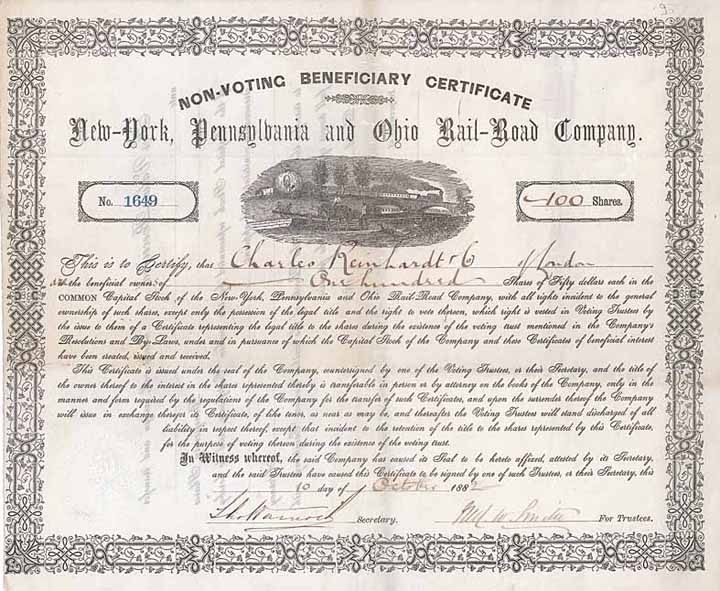 NON-VOTING BENEFICIARY CERTIFICATE
New-York, Pennsylvania and Ohio Rail-Road Company.
No. 1649
100 Shares.
This is to Certify, that Charles Reinhardt & Co of London
are the beneficial owners of One hundred Shares of Fifty dollars each in the
COMMON Capital Stock of the New-York, Pennsylvania and Ohio Rail-Road Company, with all rights incident to the general
ownership of such shares, except only the possession of the legal title and the right to vote thereon, which right is vested in Voting Trustees by
the issue to them of a Certificate representing the legal title to the shares during the existence of the voting trust mentioned in the Company's
Resolutions and By-Laws, under and in pursuance of which the Capital Stock of the Company and these Certificates of beneficial interest
have been created, issued and received.
This Certificate is issued under the seal of the Company, countersigned by one of the Voting Trustees, or their Secretary, and the title of
the owner thereof to the interest in the shares represented thereby is transferable in person or by attorney on the books of the Company, only in the
manner and form required by the regulations of the Company for the transfer of such Certificates, and upon the surrender thereof the Company
will issue in exchange therefor its Certificate, of like tenor, as near as may be, and thereafter the Voting Trustees will stand discharged of all
liability in respect thereof except that incident to the retention of the title to the shares represented by this Certificate,
for the purpose of voting thereon during the existence of the voting trust.
In Witness whereof, the said Company has caused its Seal to be hereto affixed, attested by its Secretary,
and the said Trustees have caused this Certificate to be signed by one of such Trustees, or their Secretary, this
10 day of October 1882
Secretary. For Trustees.